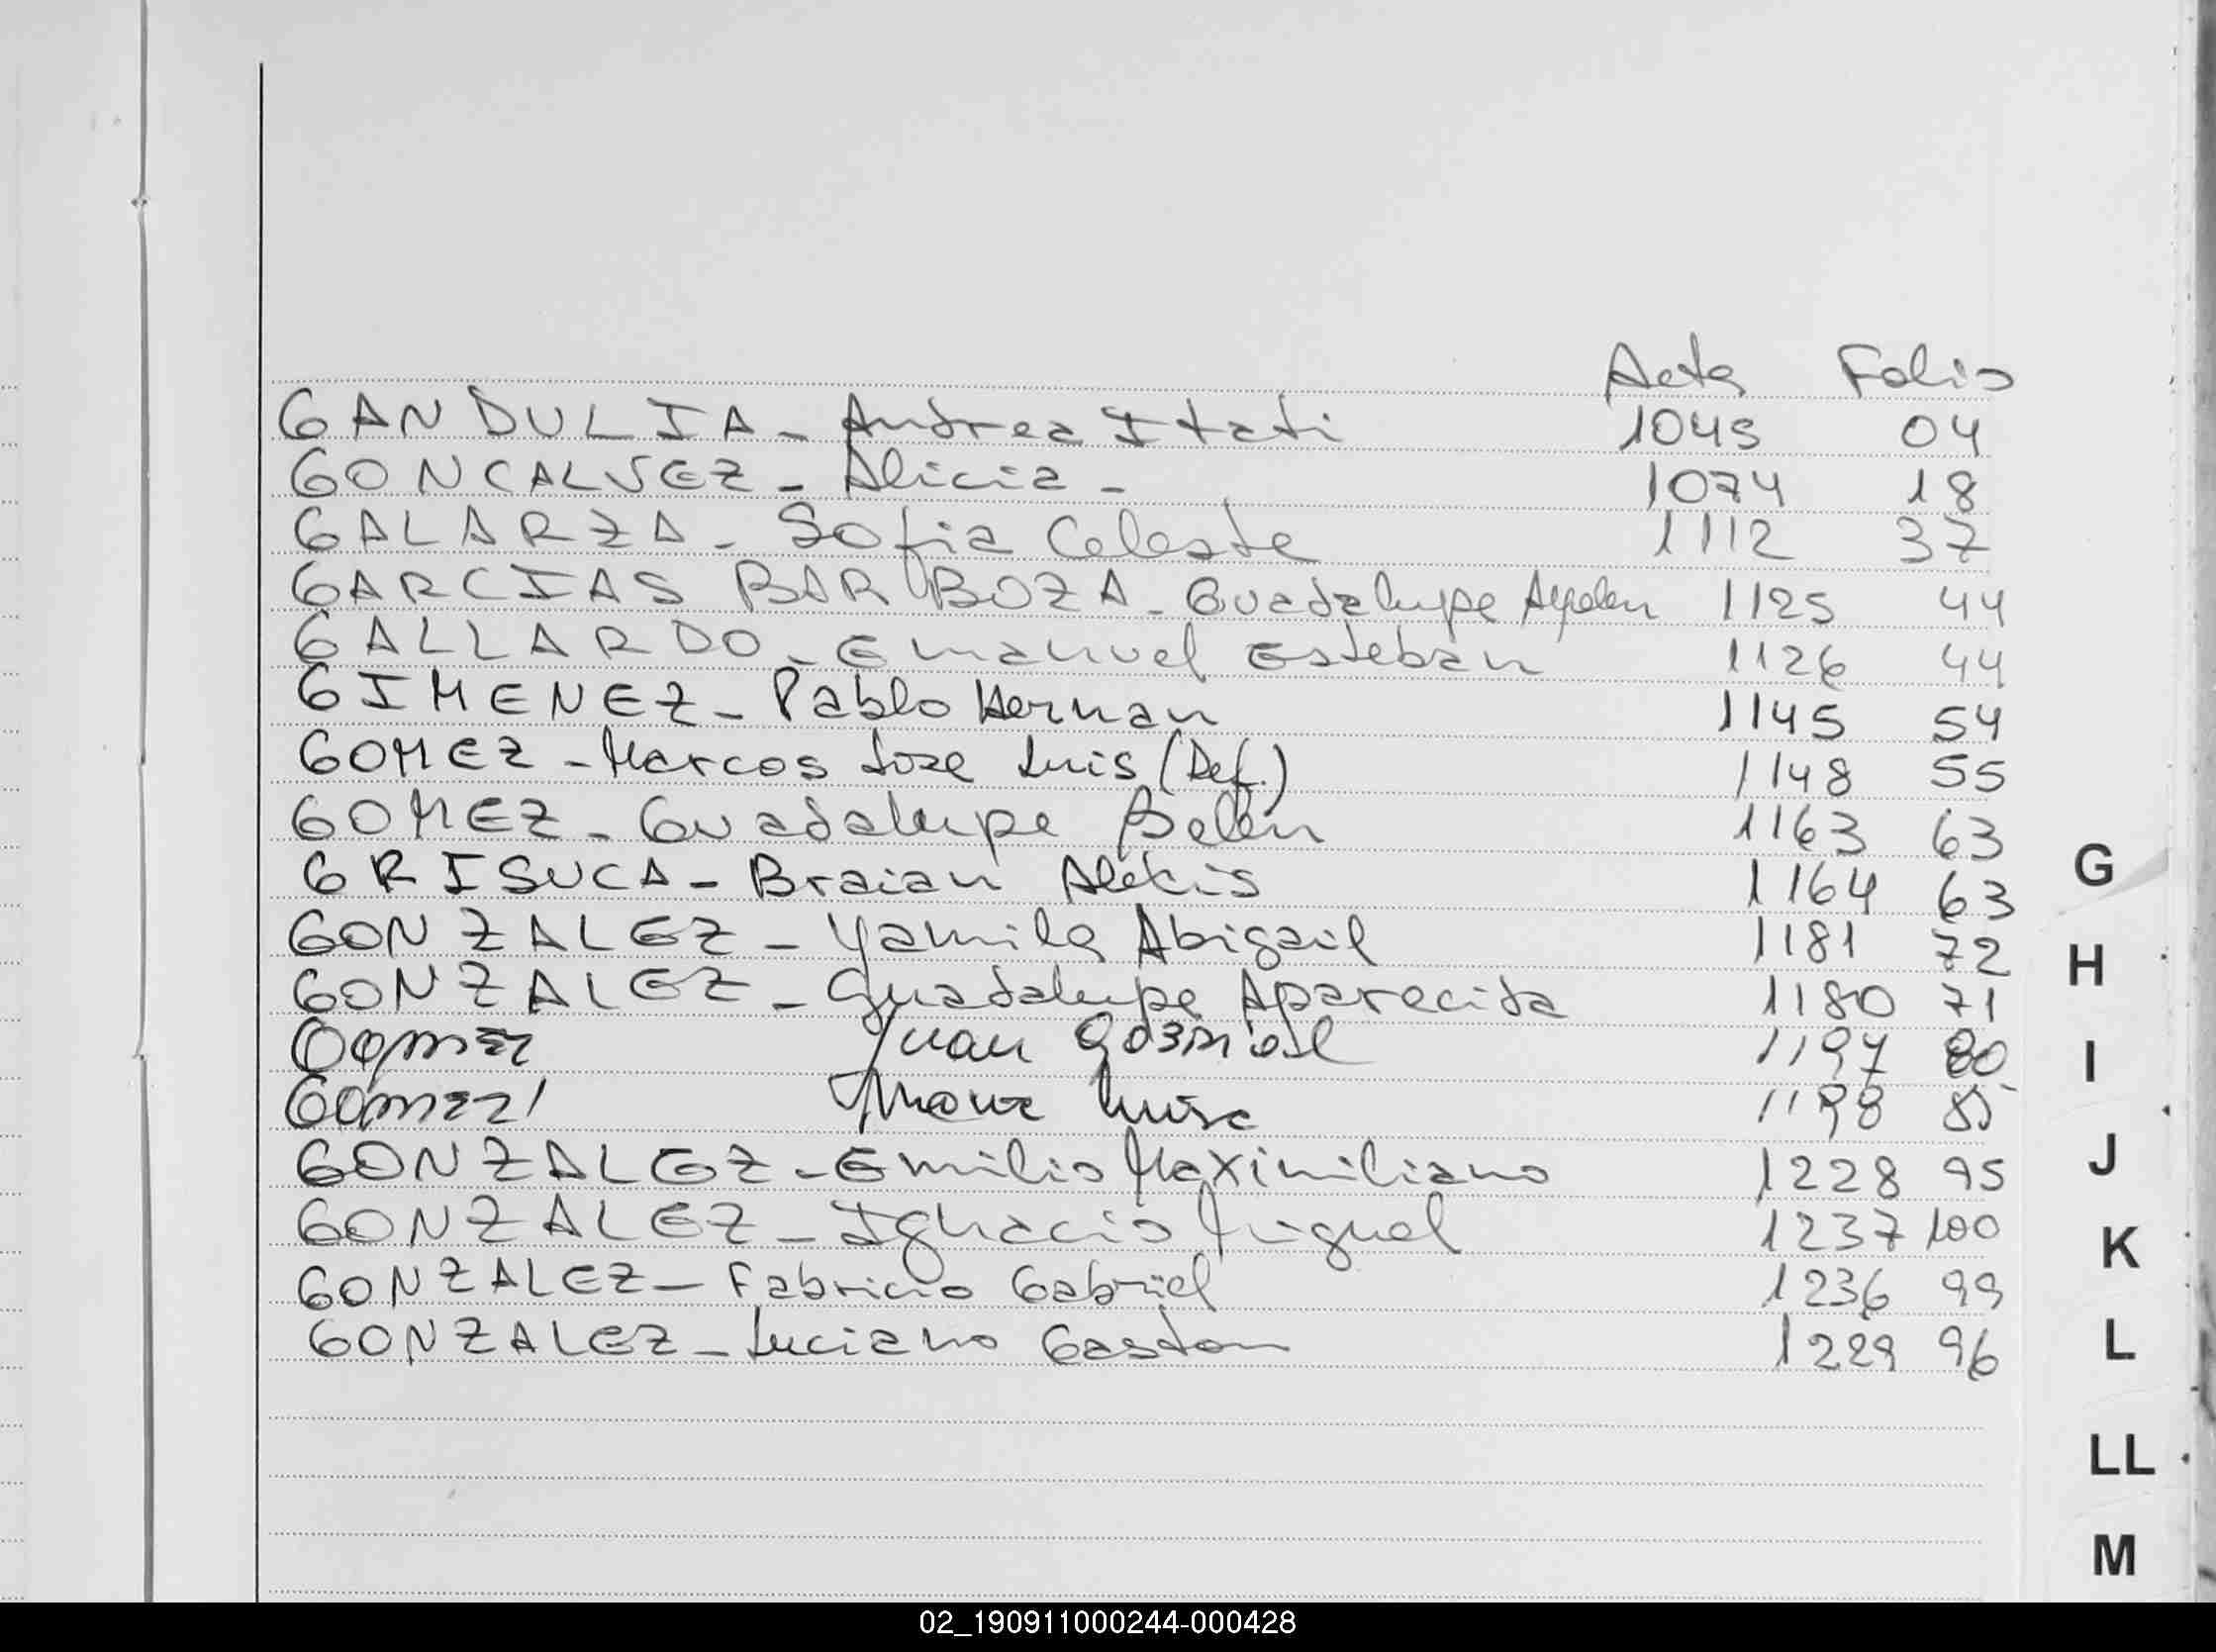 Acta Folio
GANDULIA - Andrea Itati 1045 04
GONCALVEZ - Alicia - 1074 18
GALARZA - Sofia Celeste 1112 37
GARCIAS BARBOZA - Guadalupe Ayelen 1125 44
GALLARDO - Emanuel Esteban 1126 44
GIMENEZ - Pablo Hernan 1145 54
GOMEZ - Marcos Jose Luis (Def.) 1148 55
GOMEZ - Guadalupe Belen 1163 63
GRISUCA - Braian Alexis 1164 63
GONZALEZ - Yamila Abigail 1181 72
GONZALEZ - Guadalupe Aparecida 1180 71
Gomez Juan Gabriel 1197 80
Gomez Luisa 1198
GONZALEZ - Emilio Maximiliano 1228 95
GONZALEZ - Ignacio Miguel 1237 100
GONZALEZ - Fabricio Gabriel 1236 99
GONZALEZ - Luciano Gaston 1229 96
G
H
I
J
K
L
LL
M
02_190911000244-000428